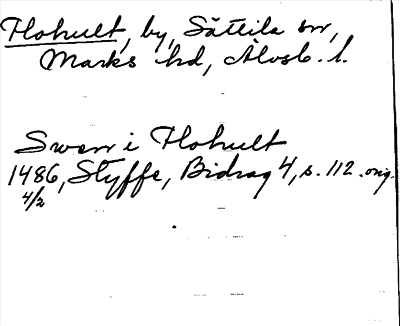 Flohult, by, Sätila sn,
Marks hd, Älvsb. l.
Swen i Flohult
1486, Styffe, Bidrag 4, s. 112. orig.
4/2